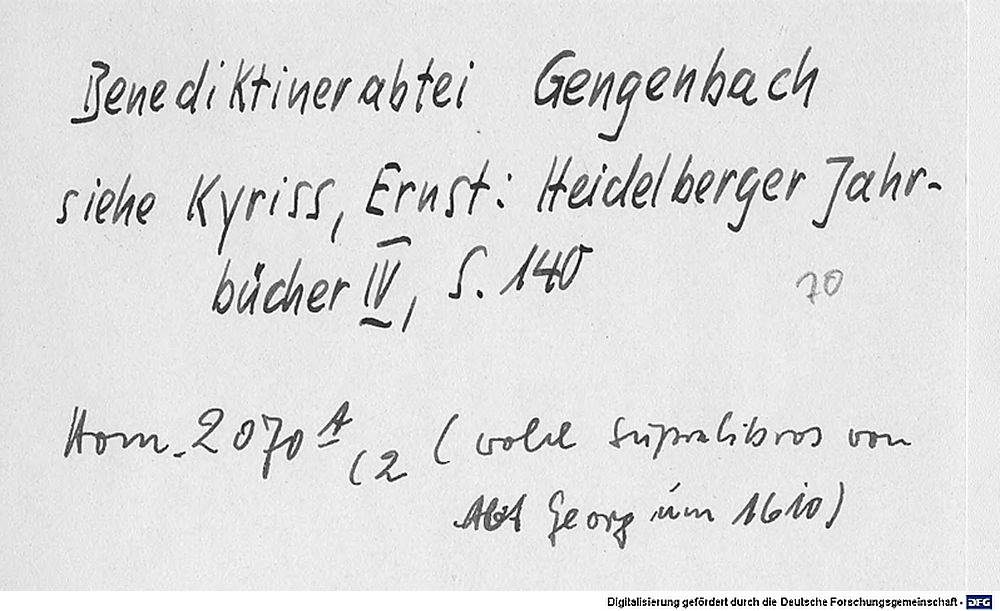 Benediktinerabtei Gengenbach
siehe Kyriss, Ernst: Heidelberger Jahr-
bücher IV, S. 140
70
Hom. 2070 A (2 (wohl Supralibros von
Abt Georg um 1610)
Digitalisierung gefördert durch die Deutsche Forschungsgemeinschaft - DFG